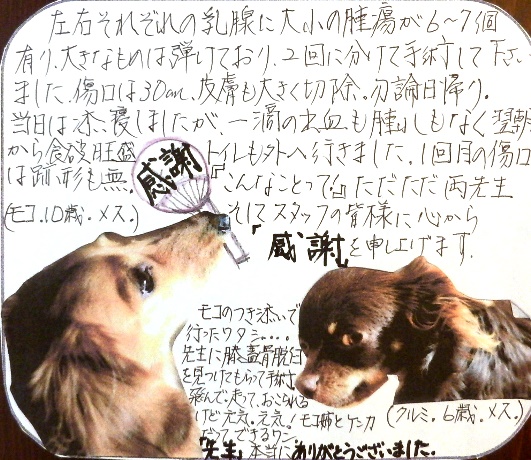 左右それぞれの乳腺に大小の腫瘍が6〜7個
有り、大きなものは弾けており、2回に分けて手術して下さい
ました。傷口は30cm、皮膚も大きく切除、勿論日帰り。
当日は添い寝しましたが、一滴の出血も腫れもなく翌朝
から食欲旺盛 トイレも外へ行きました。1回目の傷口
は跡形も無く 『こんなことって!』ただただ両先生
(モコ.10歳.メス.) そしてスタッフの皆様に心から
「感謝」を申し上げます。
感謝
モコのつき添いで
行ったワタシ....
先生に膝蓋骨脱臼
を見つけてもらって手術
飛んで走って、おこられる
けど元気、元気! モコ姉とケンカ
だってできるワン
(クルミ.6歳.メス.)
「先生」本当にありがとうございました。